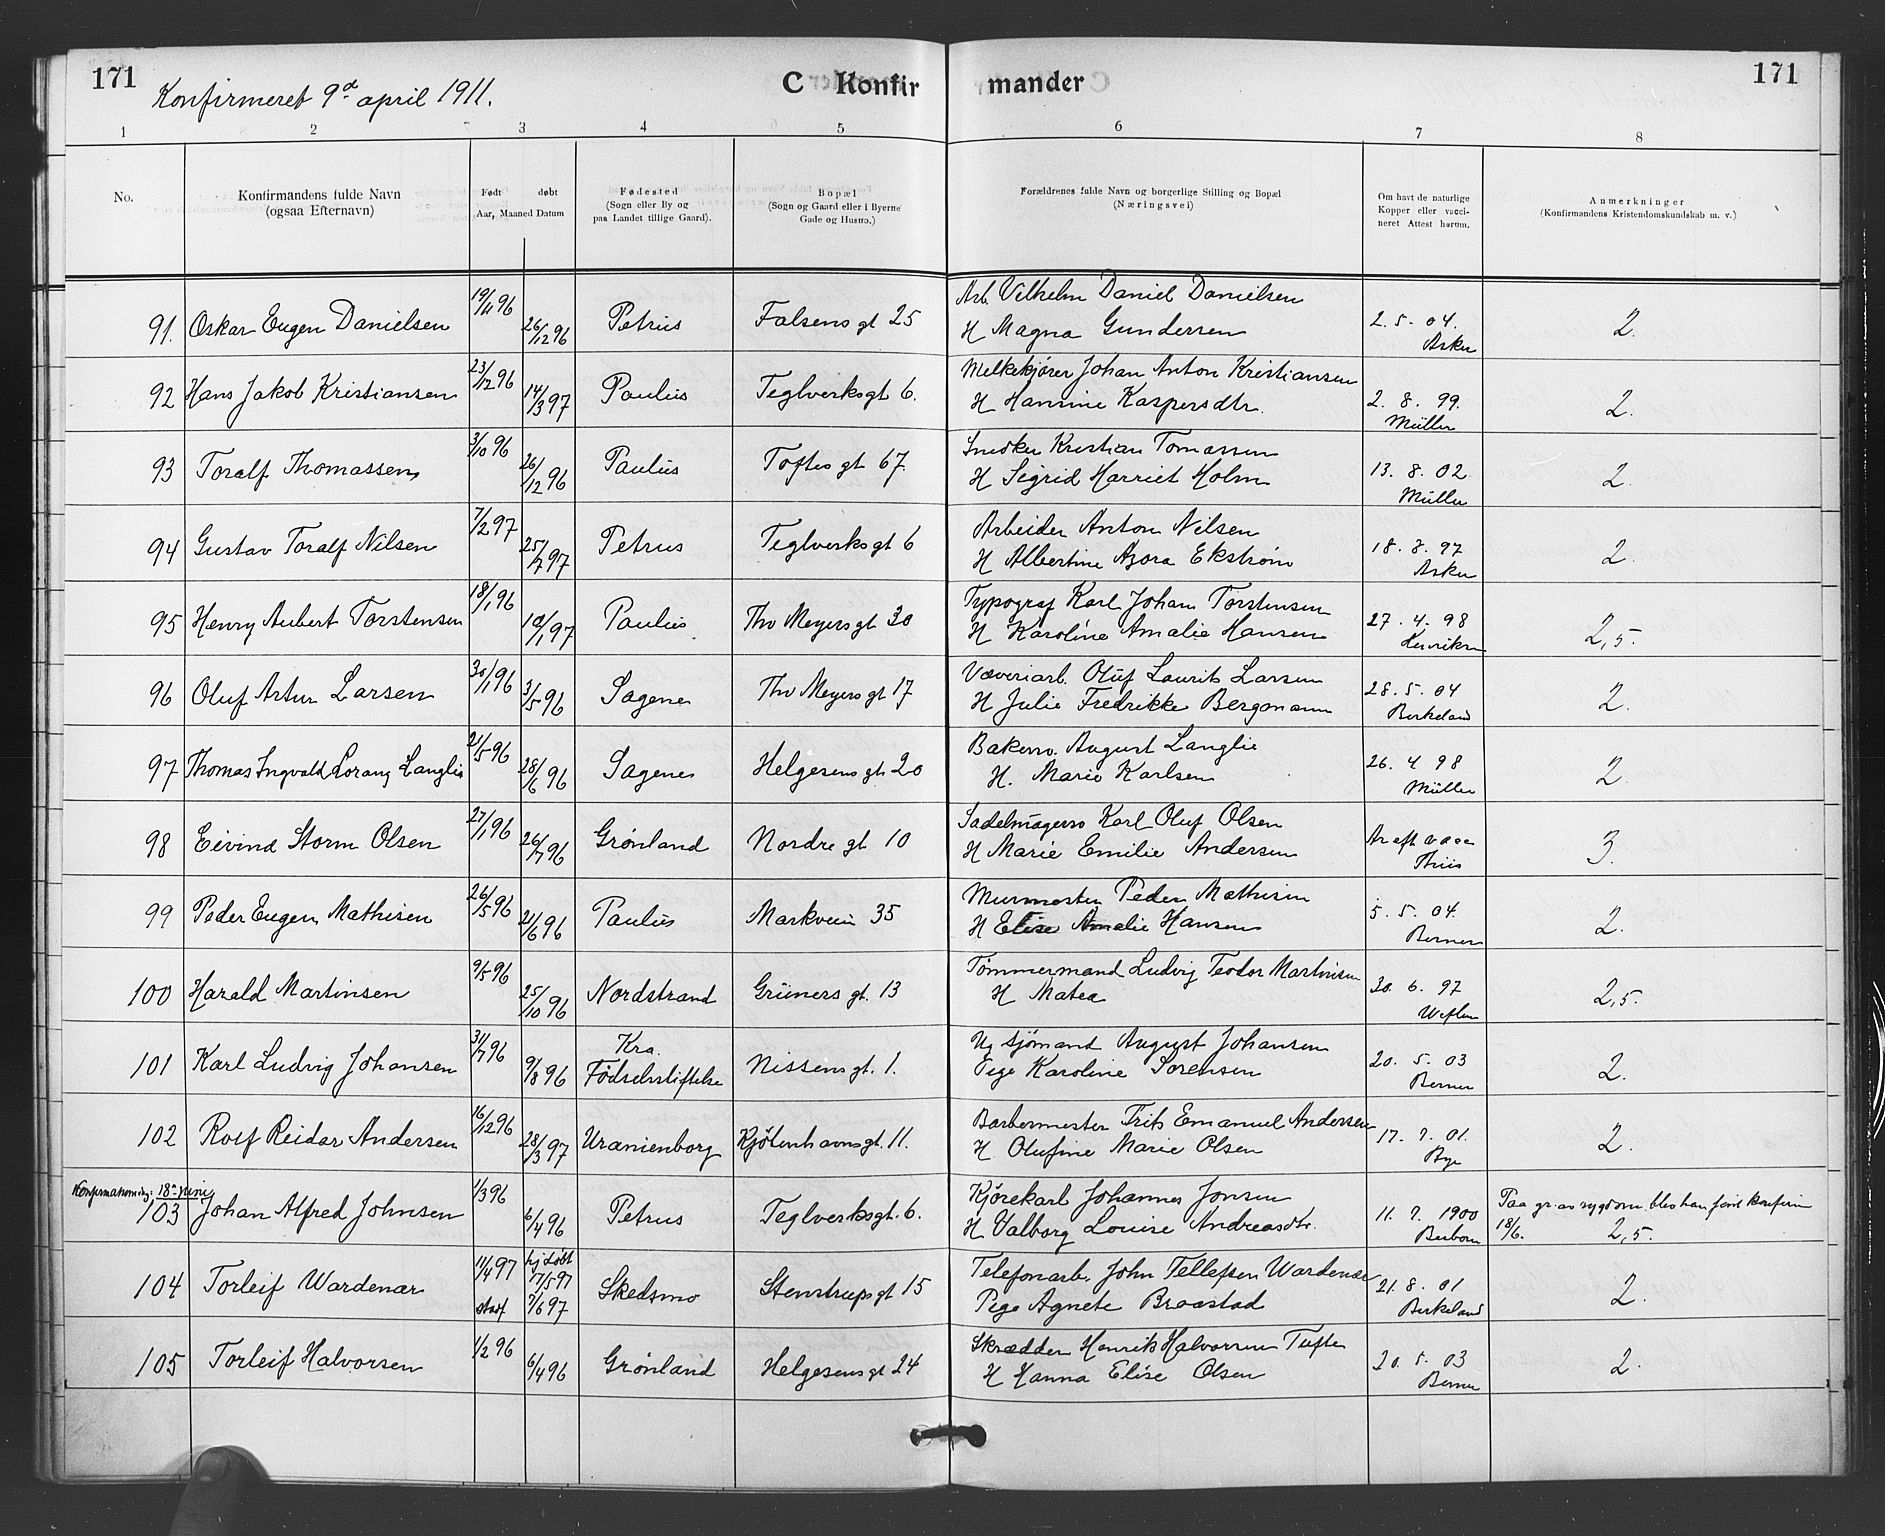 171 C Konfirmander 171
Konfirmeret 9de april 1911.
1 2 3 4 5 6 7 8
No. Konfirmandens fulde Navn (ogsaa Efternavn) Født døbt Aar, Maaned Datum Fødested (Sogn eller By og paa Landet tillige Gaard). Bopæl (Sogn og Gaard eller i Byerne Gade og Husno.) Forældrenes fulde Navn og borgerlige Stilling og Bopæl (Næringsvei) Om havt de naturlige Kopper eller vaccineret Attest herom. Anmerkninger (Konfirmandens Kristendomskundskab m. v.)
91. Oskar Eugen Danielsen 19/11 96 26/12 96 Petrus Falsens gt 25 Arb. Vilhelm Daniel Danielsen
H Magna Gundersen 2. 5. 04. Asker 2.
92 Hans Jakob Kristiansen 23/12 96 14/3 97 Paulus Teglverksgt 6. Melkekjører Johan Anton Kristiansen
H Hansine Kaspersdtr. 2. 8. 99. Müller 2.
93 Toralf Thomassen 3/10 96 26/12 96 Paulus Toftes gt 67. Snedker Kristian Tomassen
H Sigrid Harriet Holm 13. 8. 02 Müller 2.
94 Gustav Toralf Nilsen 7/2 97 25/7 97 Petrus Teglverksgt 6 Arbeider Anton Nilsen
H Albertine Azora Ekstrøm 18. 8. 97 Asker 2.
95 Henry Aubert Torstensen 18/1 96 10/1 97 Paulus Thv Meyers gt 30 Typograf Karl Johan Torstensen
H Karoline Amalie Hansen 27. 4. 98 Henriksen 2,5.
96 Oluf Artur Larsen 30/1 96 3/5 96 Sagene Thv Meyers gt 17 Væveriarb. Oluf Laurits Larsen
H Julie Fredrikke Bergmann 28. 5. 04 Birkeland 2.
97 Thomas Ingvald Lorang Langlie 21/5 96 28/6 96 Sagene Helgesens gt 20 Bakersv. August Langlie
H. Marie Karlsen 26. 4 98 Müller 2.
98 Eivind Storm Olsen 27/1 96 26/7 96 Grønland Nordre gt 10 Sadelmagersv Karl Oluf Olsen
H Marie Emilie Andersen Ar eft vacc Thiis 3.
99 Peder Eugen Mathisen 26/5 96 21/6 96 Paulus Markveien 35 Murmester Peder Mathisen
H Elise Amalie Hansen 5. 5. 04. Berner 2.
100 Harald Martinsen 9/5 96 25/10 96 Nordstrand Grüners gt. 13 Tømmermand Ludvig Teodor Martinsen
H Matea 30. 6. 97 2,5.
101 Karl Ludvig Johansen 31/7 96 9/8 96 Kra. Fødselsstiftelse Nissens gt. 1. Ug sjømand August Johansen
Pige Karoline Sørensen 20. 5. 03 Berner 2.
102 Rolf Reidar Andersen 16/12 96 28/3 97 Uranienborg Kjøbenhavnsgt. 11. Barbermester Frits Emanuel Andersen
H. Olufine Marie Olsen 17. 7. 01. Bye 2.
Konfirmationsdag: 18de juni
103 Johan Alfred Johnsen 1/3 96 6/4 96 Petrus Teglverksgt. 6. Kjørekarl Johannes Jonsen
H Valborg Louise Andreasdtr. 11. 7. 1900 Paa gr. av sygdom blev han først konfirm 18/6. 2,5.
104 Torleif Wardenær 11/4 97 stadf hj døbt 17/5 97 7/6 97 Skedsmo Stenstrupsgt 15 Telefonarb. John Tellefsen Wardenær
Pige Agnete Braastad 21. 8. 01 Birkeland 2.
105 Torleif Halvorsen 1/2 96 6/4 96 Grønland Helgesens gt 24 Skrædder Henrik Halvorsen Tufte
H Hanna Elise Olsen 20. 5. 03 Berner 2.